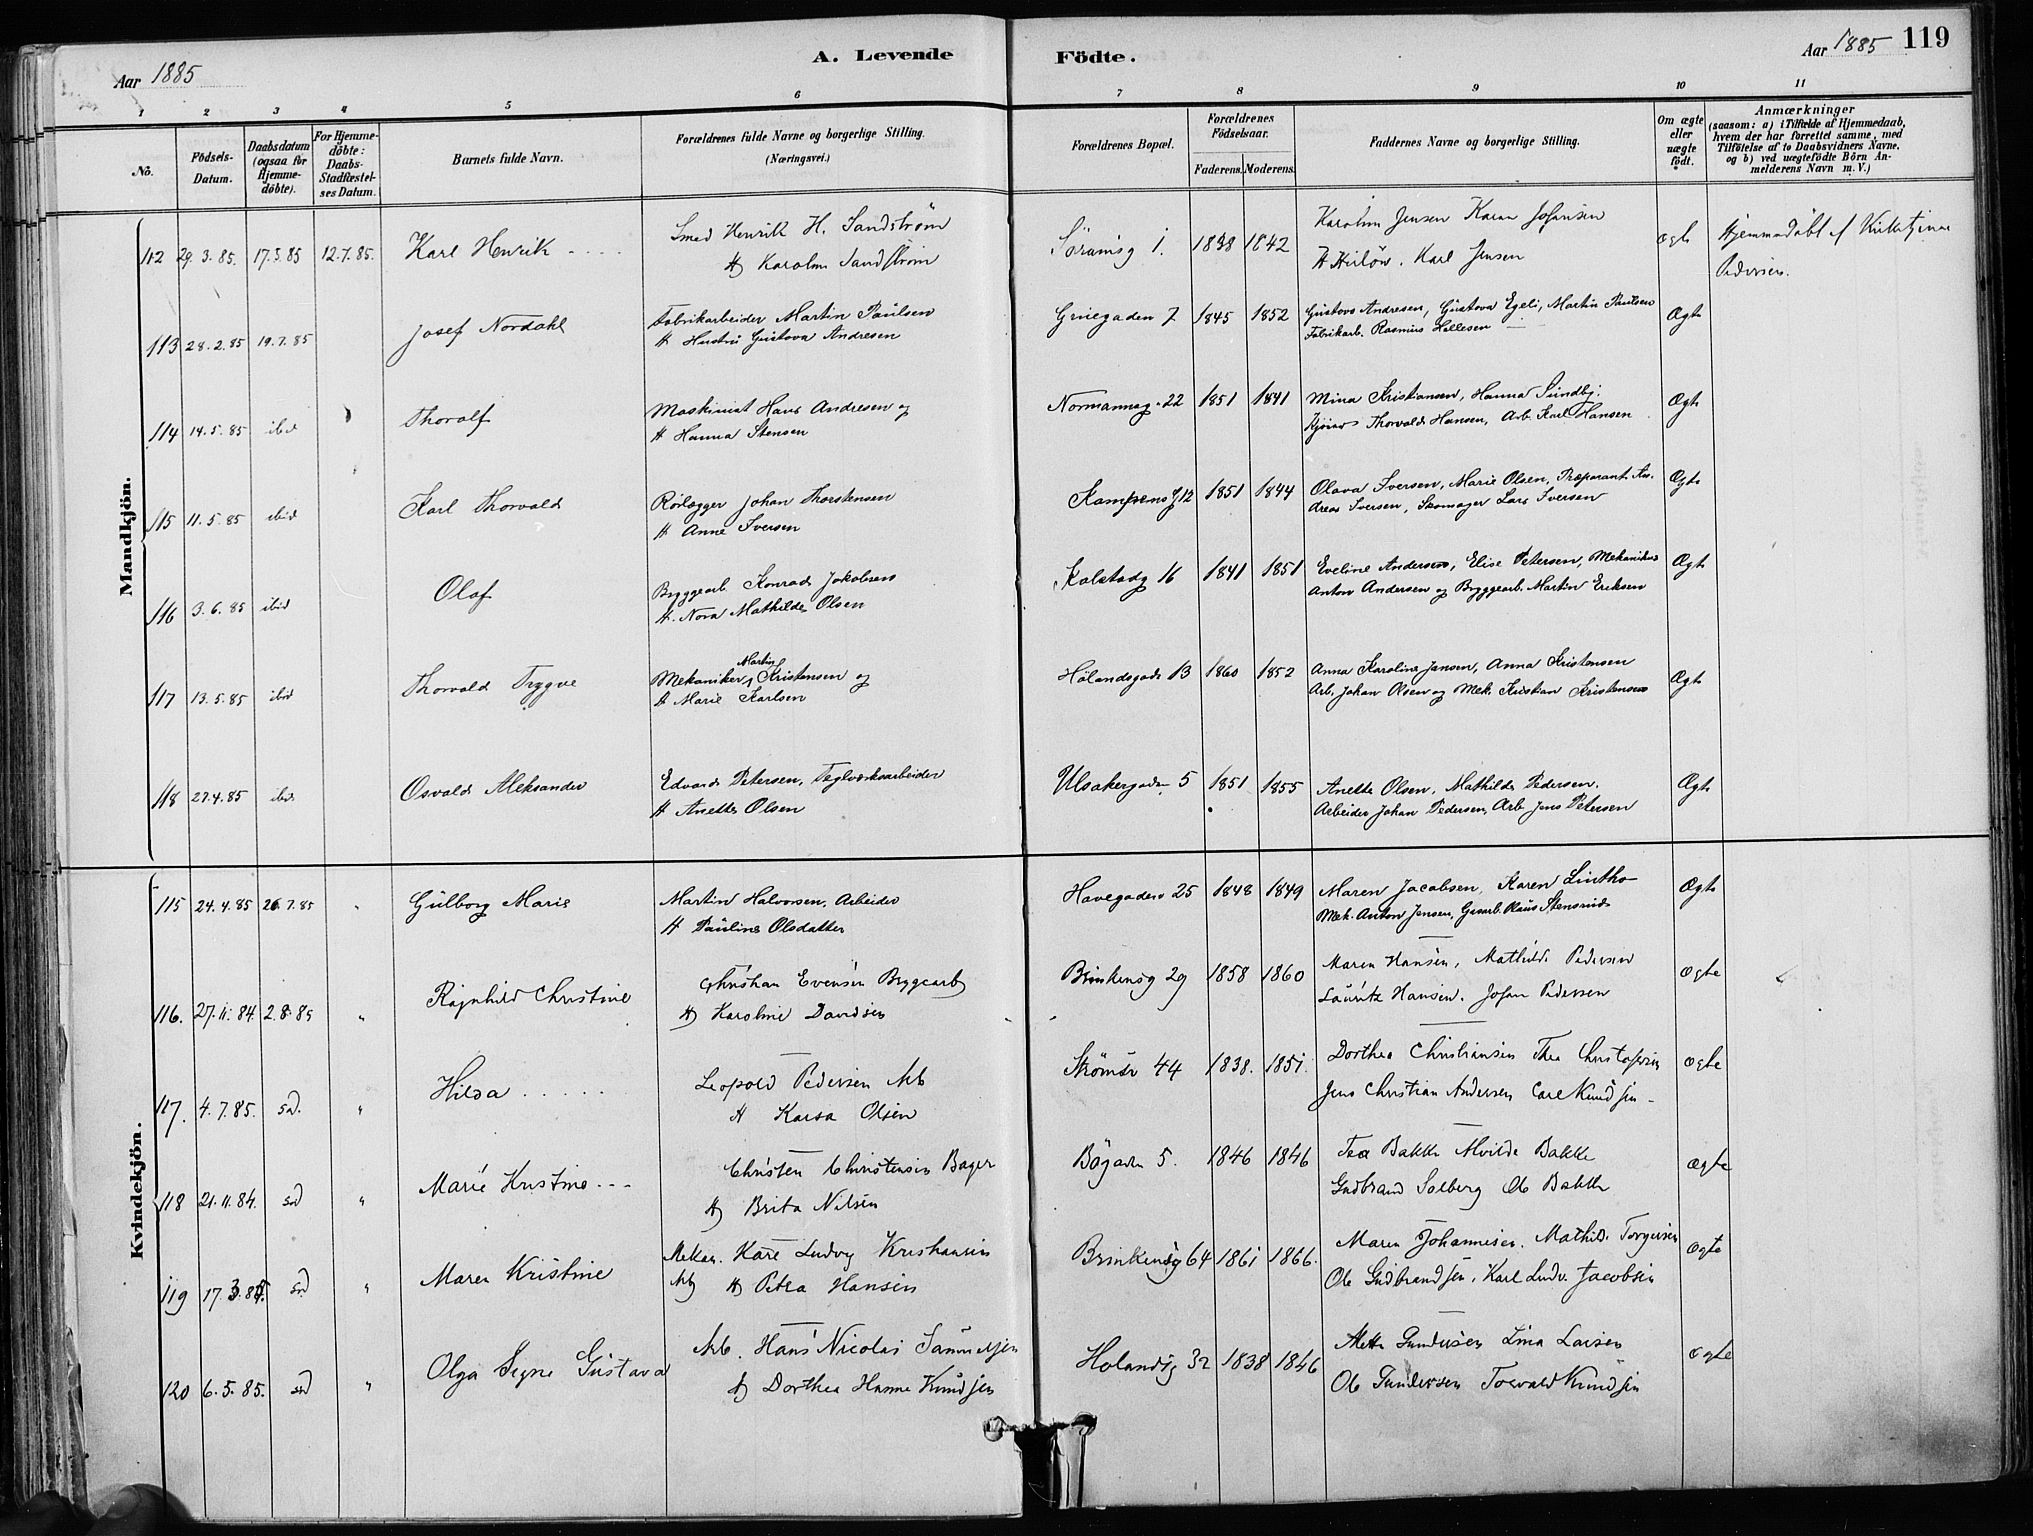 Aar 1885
A. Levende
Födte.
Aar 1885 119
1 2 3 4 5 6 7 8 9 10 11
No.
Födsels-Datum.
Daabsdatum (ogsaa for Hjemme-döbte).
For Hjemme-döbte: Daabs-Stadfæstel-ses Datum.
Barnets fulde Navn.
Forældrenes fulde Navne og borgerlige Stilling.
(Næringsvei.)
Forældrenes Bopæl.
Forældrenes Födselsaar.
Faderens. Moderens.
Faddernes Navne og borgerlige Stilling.
Om ægte eller uægte födt.
Anmærkninger
(saasom: a) i Tilfælde af Hjemmedaab, hvem der har forrettet samme, med Tilföielse af to Daabsvidners Navne, og b) ved uægtefödte Börn An-melderens Navn m. V.)
Mandkjön.
112 29.3.85. 17.5.85 12.7.85. Karl Henrik Smed Henrik H. Sandström 1838 1842 Karen Johansen Ægte Hjemmedöbt af
H Sandström Karl Jensen Pedersen.
113 28.2.85 19.7.85 Josef Nordahl Fabrikarbeider Martin Paulsen Grüegaden 7 1845 1852 Gustava Andresen, Gustava Egeli, Martin Paulsen Ægte
H Hustru Gustava Andresen Fabrikarb. Rasmus Hellesen
114 14.5.85 ibid Thoralf Maskinist Hans Andresen og Normannsg. 22 1851 1841 Mina Kristiansen, Hanna Sundbj. Ægte
H Hanna Stensen Thorvald Hansen, Arb. Karl Hansen
115 11.5.85 ibid Karl Thorvald Rörlægger Johan Thorstensen Kampensg 12 1851 1844 Olava Iversen, Marie Olsen, Præparant An- Ægte
H Anne Iversen dreas Iversen, Skomager Lars Iversen
116 3.6.85 ibid Olaf Bryggearb Konrad Jakobsen Kalstadg 16 1841 1851 Eveline Andersen, Elise Petersen, Mekanikus Ægte
H. Nora Mathilde Olsen Anton Andersen og Bryggearb. Martin Eriksen
117 13.5.85 ibid Thorvald Trygve Mekaniker Martin Kristensen og Hölandsgade 13 1860 1852 Anna Karoline Jansen, Anna Kristensen Ægte
H Marie Karlsen Arb. Johan Olsen og Mek. Kristian Kristensen
118 27.4.85 ibid Osvald Aleksander Edvard Petersen, Teglværksarbeider Ulsakergaden 5 1851 1855 Anette Olsen, Mathilde Pedersen. Ægte
H Anette Olsen Arbeider Johan Pedersen, Arb Jens Petersen
Kvindekjön.
115 24.4.85 26.7.85 " Gulborg Marie Martin Halvorsen, Arbeider Havegaden 25 1848 1849 Maren Jacobsen, Karen Lintho Ægte
H Pauline Olsdatter Mek. Anton Jensen, Gasarb. Claus Stensrud
116. 27.11.84. 2.8.85 " Ragnhild Christine Christian Evensen Bryggearb Brinkensg 29 1858 1860 Maren Hansen, Mathilde Pedersen Ægte
H Karoline Davidsen Lauritz Hansen. Johan Pedersen
117. 4.7.85. sad. " Hilda Leopold Pedersen Arb Strömsv 44 1838. 1851. Dorthea Christiansen Thea Christophersen Ægte
H Karsa Olsen Jens Christian Andersen Carl Knudsen
118 21.11.84. sad " Marie Kristine Christen Christensen Bager Bögaden 5. 1846 1846 Tea Bakke Alvilde Bakke Ægte
H Brita Nilsen Gudbrand Solberg Ole Bakke
119 17.3.84. sad " Maren Kristine Mekan. Karl Ludvig Kristiansen Brinkensg 64 1861 1866. Maren Johannesen. Mathilde Torgersen Ægte
Arb H Petra Hansen Ole Gudbrandsen, Karl Ludv. Jacobsen
120 6.5.85. sad " Olga Signe Gustava Arb. Hans Nicolai Samuelsen Holandsg 32 1838 1846 Mette Gundersen Lina Larsen Ægte
H Dorthea Hanne Knudsen Ole Gundersen Torvald Knudsen